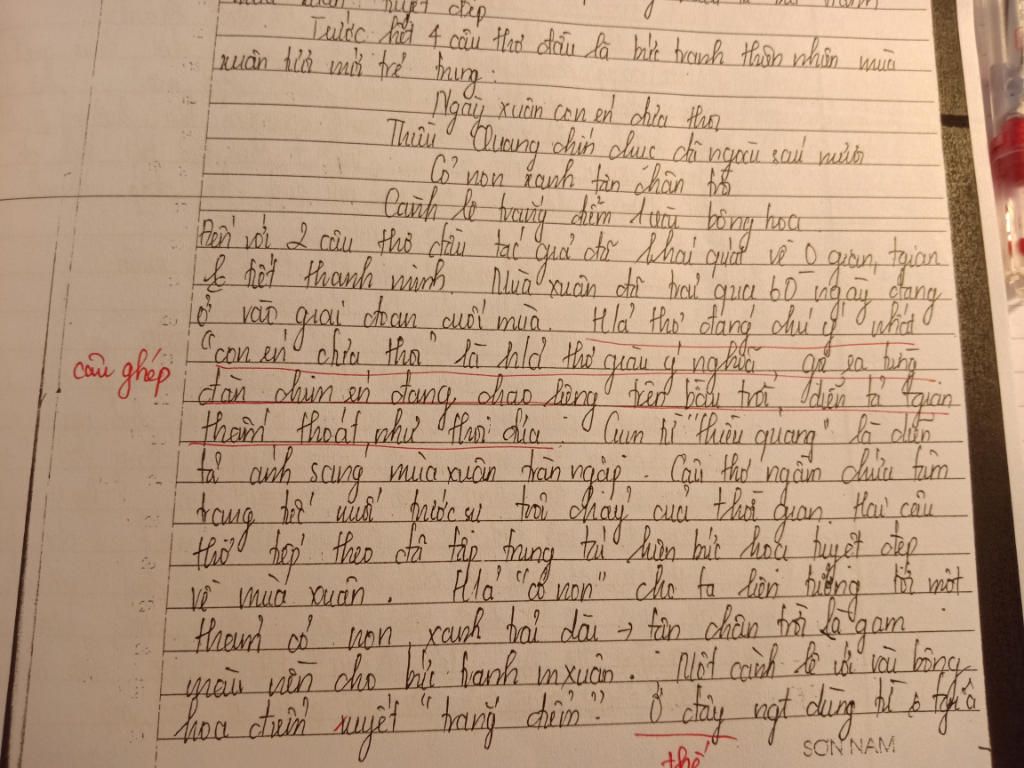 tuyệt đẹp
Trước hết 4 câu thơ đầu là bức tranh thiên nhiên mùa
xuân tươi mới trẻ trung:
Ngày xuân con én đưa thoi
Thiều Quang chín chục đã ngoài sáu mươi
Cỏ non xanh tận chân trời
Cành lê trắng điểm 1 vài bông hoa
Đến với 2 câu thơ đầu tác giả đã khái quát về 0 gian, tgian
tiết thanh minh. Mùa xuân đã trải qua 60 ngày đang
ở vào giai đoạn cuối mùa. H/ả thơ đáng chú ý nhất
"con én đưa thoi" là h/ả thơ giàu ý nghĩa, gợi ra từng
câu ghép
đàn chim én đang chao liệng trên bầu trời diễn tả tgian
thấm thoát như thoi đưa. Cụm từ "thiều quang" là diễn
tả ánh sáng mùa xuân tràn ngập. Câu thơ ngầm chứa tâm
trạng tiếc nuối trước sự trôi chảy của thời gian. Hai câu
thơ tiếp theo đã tập trung tái hiện bức họa tuyệt đẹp
về mùa xuân. H/ả "cỏ non" cho ta liên tưởng tới một
thảm cỏ non xanh trải dài → tận chân trời là gam
màu nền cho bức tranh mxuân. Một cành lê với vài bông
hoa điểm xuyết "trắng điểm". Ở đây ngt dùng từ
thế
SƠN NAM